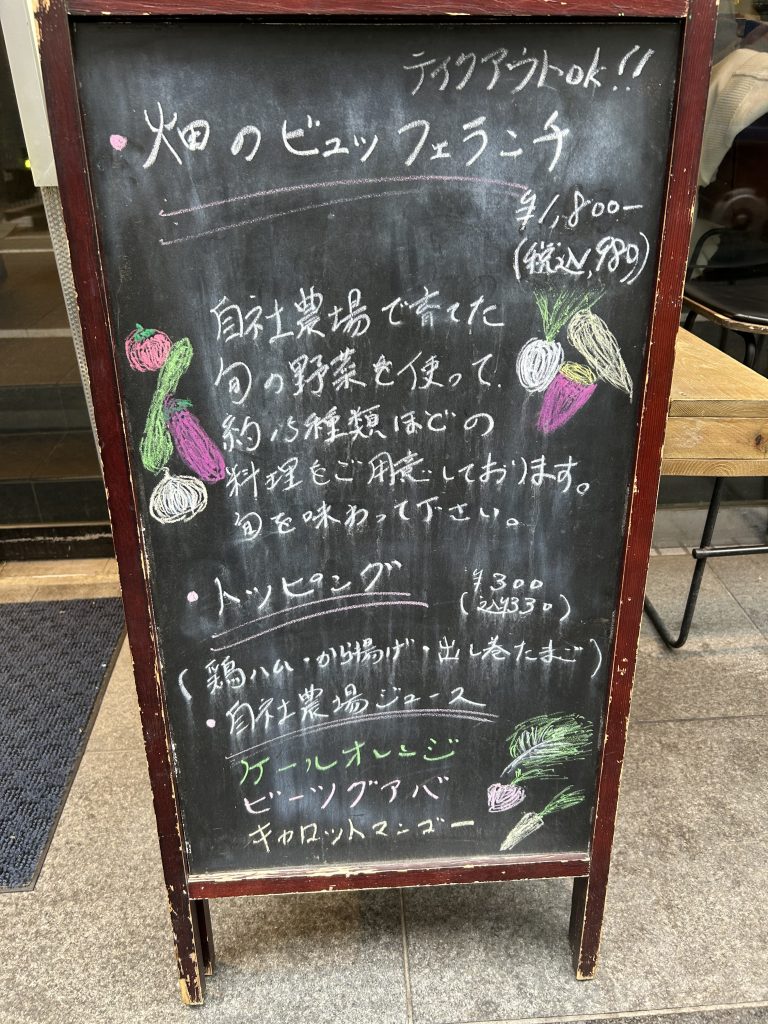 テイクアウトok!!
・畑のビュッフェランチ
¥1,800-
(税込1,980)
自社農場で育てた
旬の野菜を使って、
約15種類ほどの
料理をご用意しております。
旬を味わって下さい。
・トッピング
¥300
(込¥330)
(鶏ハム・から揚げ・出し巻たまご)
・自社農場ジュース
ケールオレンジ
ビーツグアバ
キャロットマンゴー